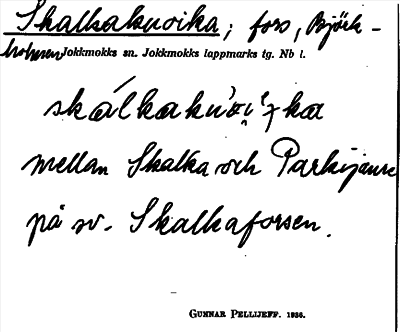 Skalkakuoika; fors, Björk-
holmen Jokkmokks sn. Jokkmokks lappmarks tg. Nb l.
mellan Skalka och Parkijaure
på sv. Skalkaforsen.
GUNNAR PELLIJEFF. 1936.